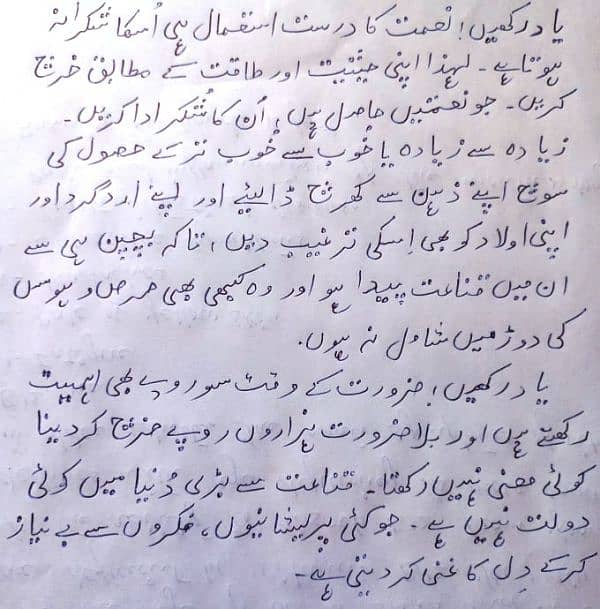 یاد رکھیں! نعمت کا درست استعمال ہی اُسکا شکرانہ
ہوتا ہے۔ لہٰذا اپنی حیثیت اور طاقت کے مطابق خرچ
کریں۔ جو نعمتیں حاصل ہیں، اُن کا شُکر ادا کریں۔
زیادہ سے زیادہ یا خُوب سے خُوب تر کے حصول کی
سوچ اپنے ذہن سے کھرچ ڈالیئے اور اپنے اردگرد اور
اپنی اولاد کو بھی اِسکی ترغیب دیں، تاکہ بچپن ہی سے
ان میں قناعت پیدا ہو اور وہ کبھی بھی حرص و ہوس
کی دوڑ میں شامل نہ ہوں۔
یاد رکھیں! ضرورت کے وقت سو روپے بھی اہمیت
رکھتے ہیں اور بلا ضرورت ہزاروں روپے خرچ کر دینا
کوئی معنی نہیں رکھتا۔ قناعت سے بڑی دُنیا میں کوئی
دولت نہیں ہے۔ جو کئی پریشانیوں، فکروں سے بے نیاز
کرکے دِل کا غنی کر دیتی ہے۔